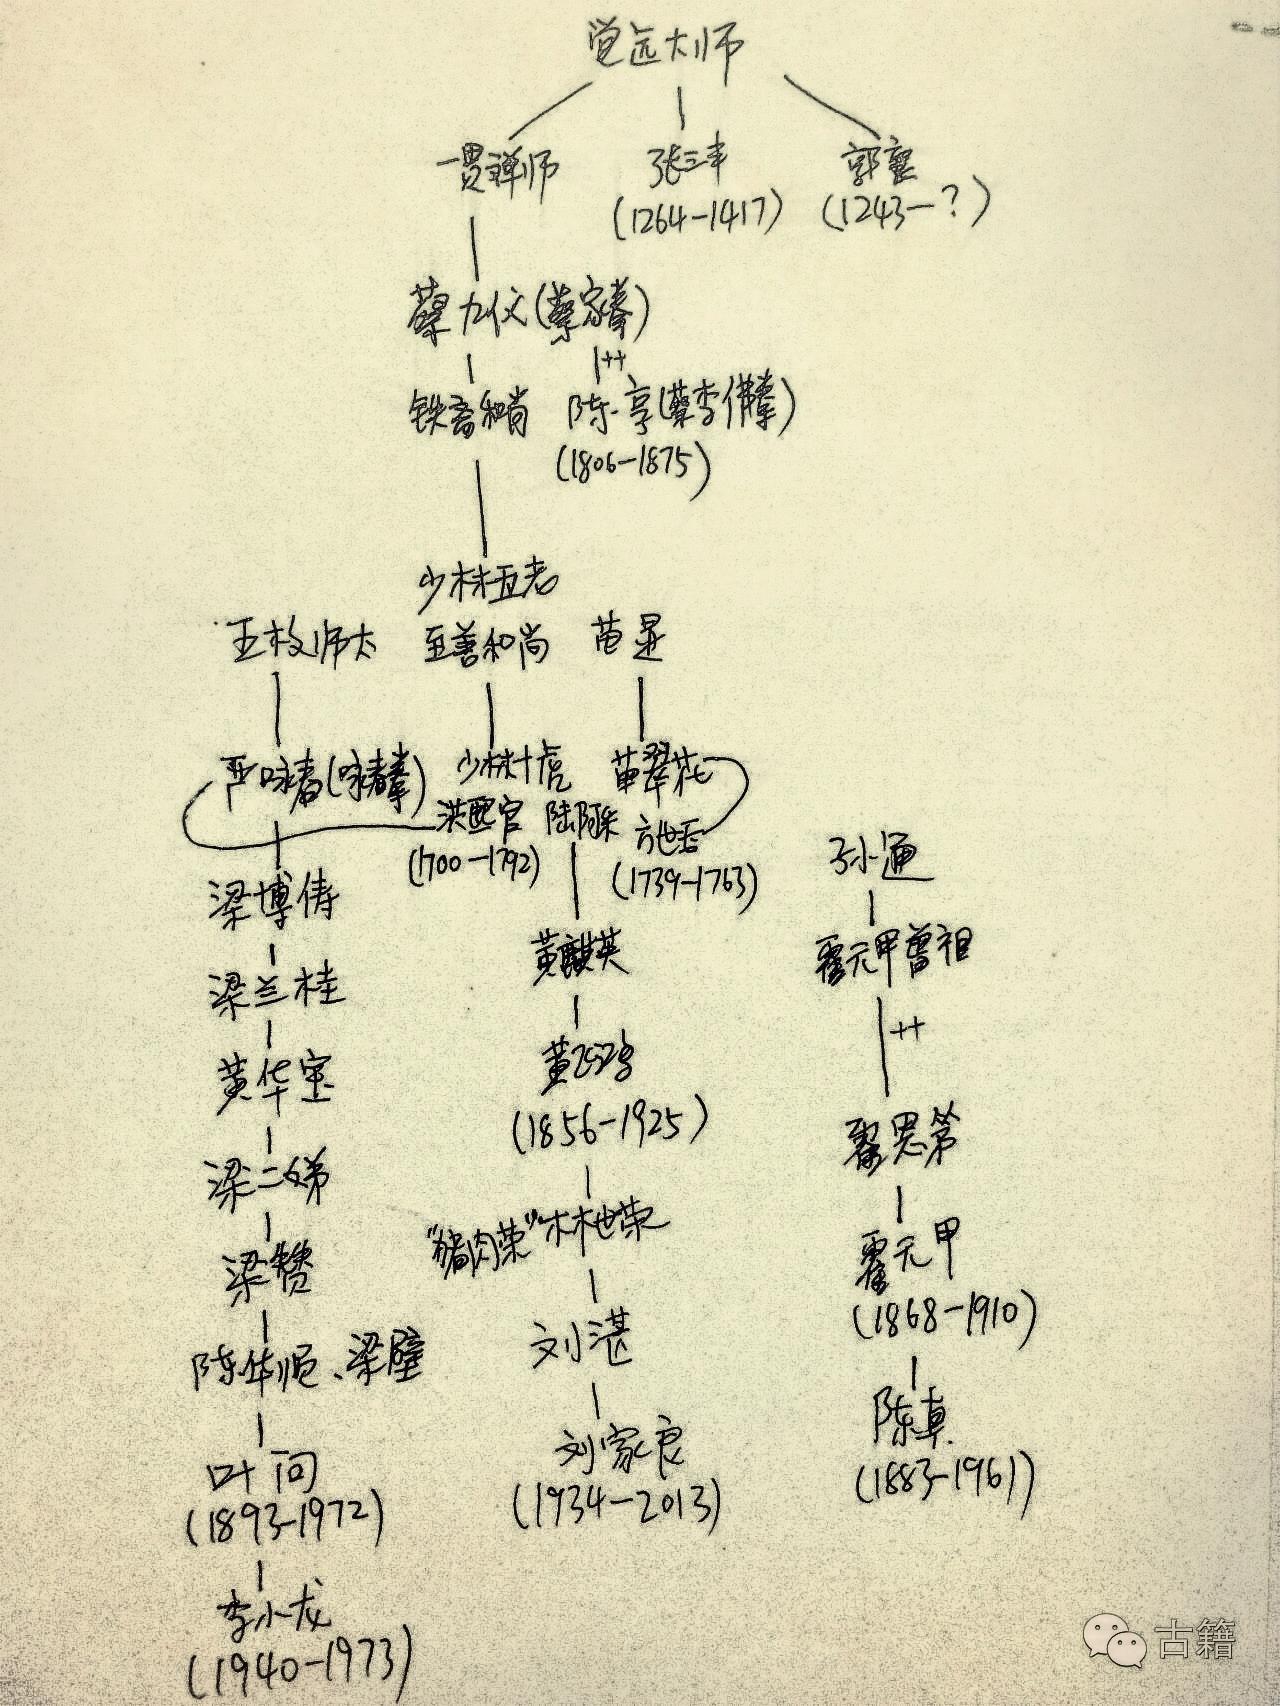 觉远大师
一贯禅师 张三丰 郭襄
(1264-1417) (1243-?)
蔡九仪(蔡家拳)
++
铁斋和尚 陈享(蔡李佛拳)
(1806-1875)
少林五老
五枚师太 至善和尚 苗显
严咏春(咏春拳) 少林十虎 苗翠花
洪熙官 陆阿采 方世玉
(1700-1792) (1739-1763)
孙通
梁博俦
黄麒英 霍元甲曾祖
梁兰桂
++
黄华宝 黄飞鸿
(1856-1925) 霍恩第
梁二娣
"猪肉荣"林世荣
梁赞 霍元甲
(1868-1910)
陈华顺、梁壁 刘湛
陈真
叶问 刘家良
(1893-1972) (1934-2013) (1883-1961)
李小龙
(1940-1973)
古籍